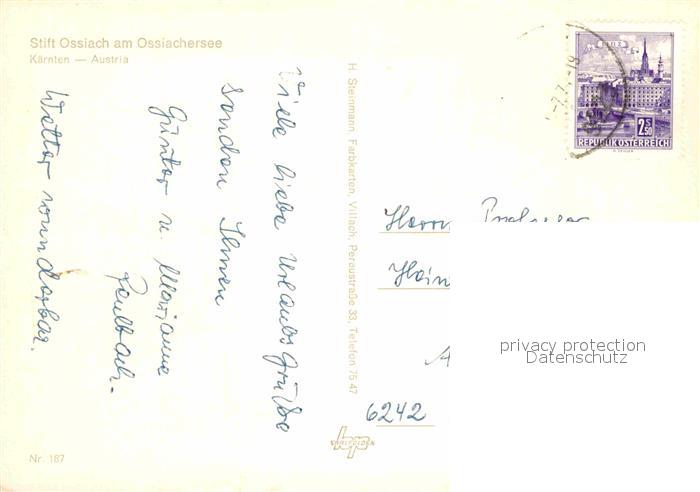 Stift Ossiach am Ossiachersee
Kärnten — Austria
Viele liebe Urlaubsgrüße
senden Ihnen
Günter u. Marianne
Wetter wunderbar.
Nr. 187
H. Steinmann, Farbkarten, Villach, Peraustraße 33, Telefon 75 47
2 S 50
REPUBLIK ÖSTERREICH
Herrn
6242
privacy protection
Datenschutz